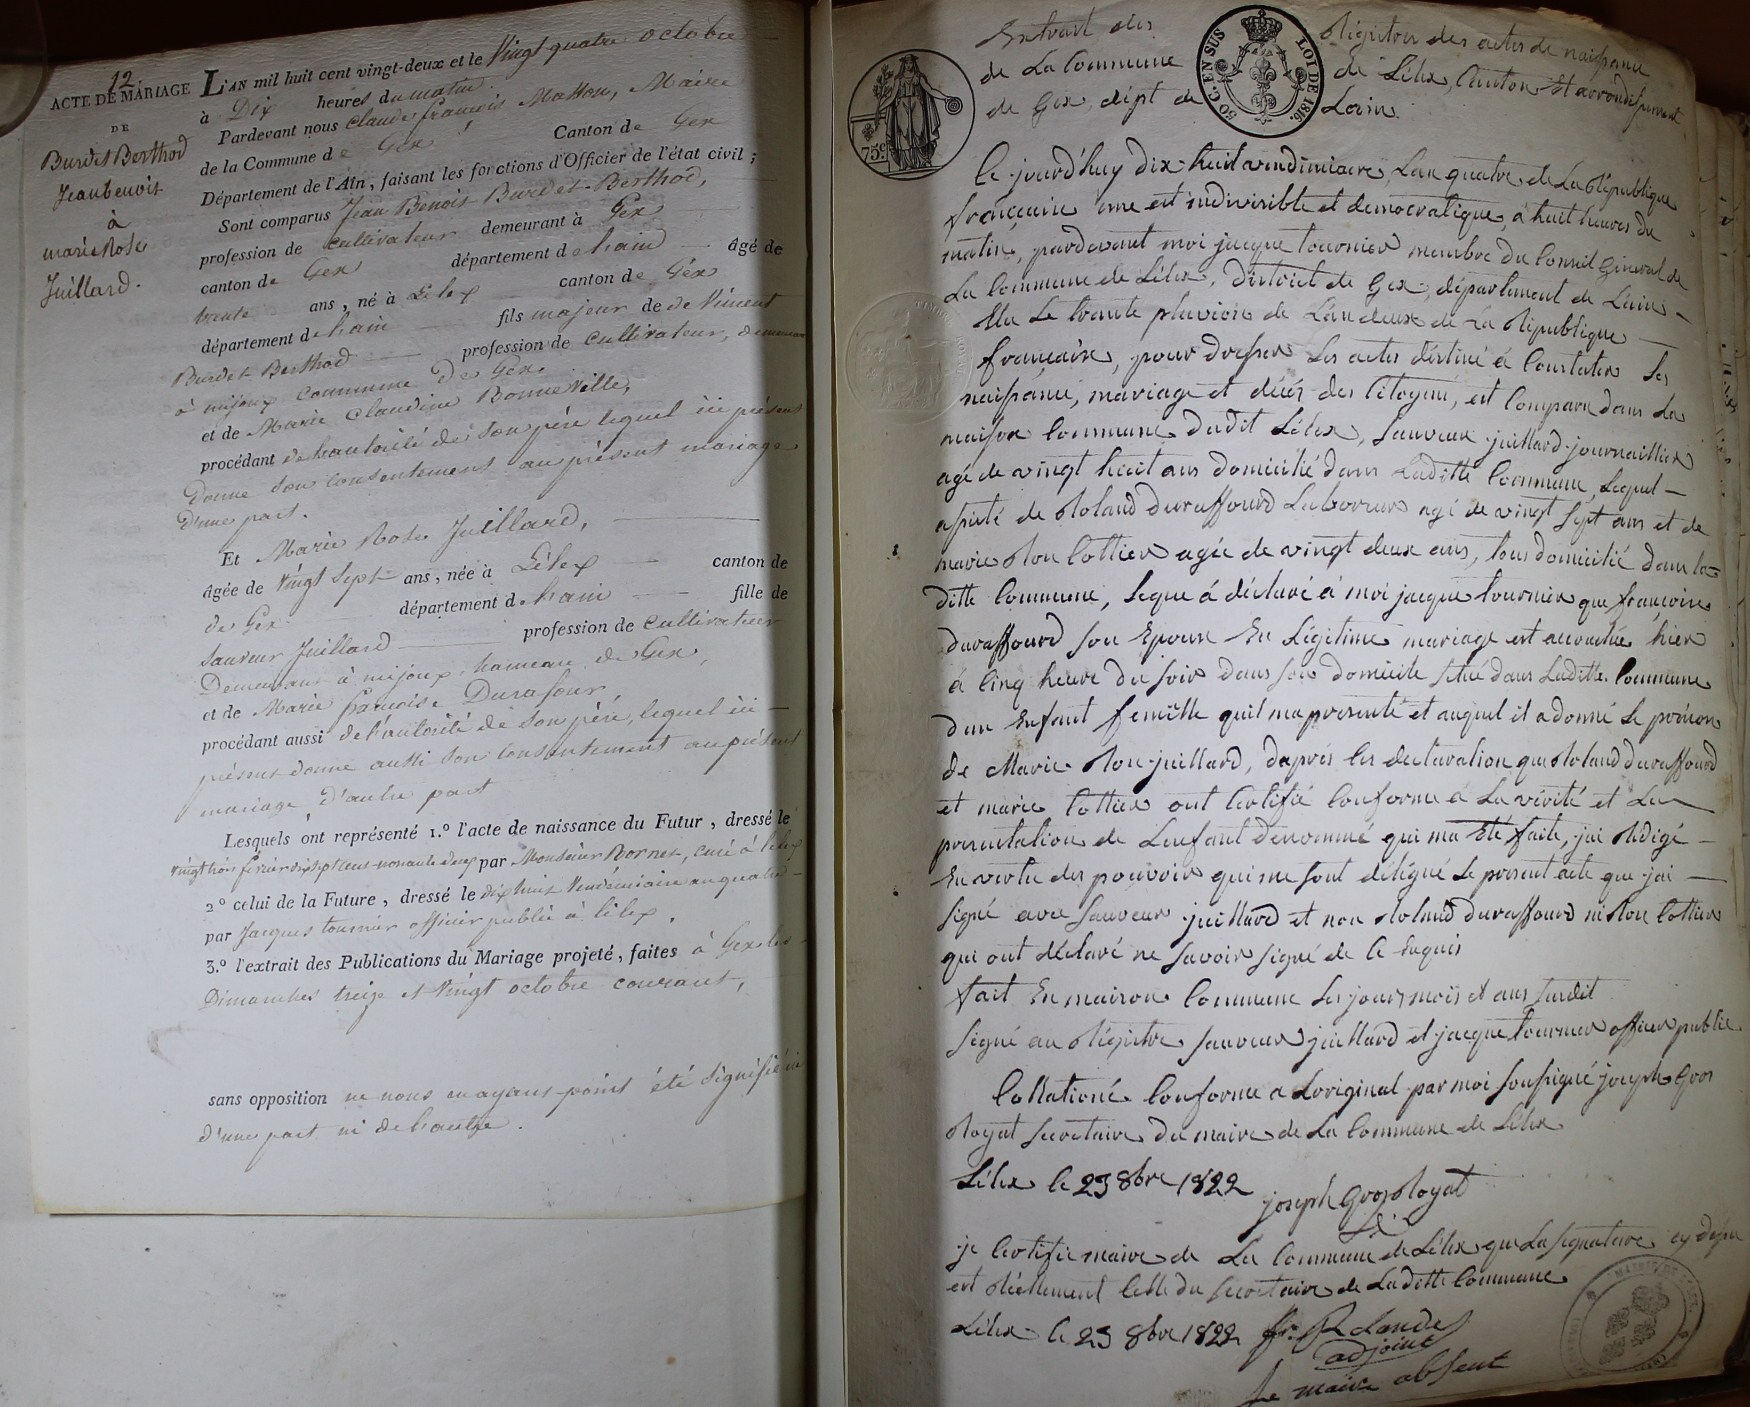 12
ACTE DE MARIAGE
DE
Burdet Berthod
Jean benoit
à
marie Rose
Juillard.
L'AN mil huit cent vingt-deux et le Vingt quatre octobre
à Dix heures du matin.
Pardevant nous Claude françois Matton, Maire
de la Commune de Gex Canton de Gex
Département de l'Ain, faisant les fonctions d'Officier de l'état civil;
Sont comparus Jean Benoit Burdet-Berthod,
profession de cultivateur demeurant à Gex
canton de Gex département de Lain âgé de
trente ans, né à Lélex canton de Gex
département de Lain fils majeur de de Vincent
Burdet Berthod profession de Cultivateur,
à mijoux commune de Gex
et de Marie Claudine Bonneville,
procédant de Lautorité de son père lequel ici présent
donne son consentement au présent mariage
d'une part.
Et Marie Rose Juillard,
âgée de Vingt Sept ans, née à Lélex canton de
de Gex département de Lain fille de
Sauveur Juillard profession de Cultivateur
Demeurant à mijoux, hameau de Gex,
et de Marie françoise Durafour,
procédant aussi de l'autorité de son père, lequel ici
présent donne aussi son consentement au présent
mariage d'autre part
Lesquels ont représenté 1.º l'acte de naissance du Futur, dressé le
vingt trois février dix sept cent nonante deux par Monsieur Bornet, curé à lelex
2º celui de la Future, dressé le dix huit Vendémiaire an quatre
par Jacques tournier officier public à lélex.
3.º l'extrait des Publications du Mariage projeté, faites à Gex les
Dimanches treize et Vingt octobre courant,
sans opposition ne nous en ayant point été signifié ni
d'une part ni de Lautre.
Extrait des Régistres des actes de naissance
de La Commune de Lélex, Canton Et arrondissement
de Gex, dépt de Lain.
75c.
50 C. EN SUS
LOI DE 1816.
Ce jourd'huy dix-huit vendimiaire, Lan quatre de La République
françaine une est indivisible et democratique, à huit heures du
matin, pardevant moi jacque tournier membre du Conseil Géneral de
La Commune de Lélex, District de Gex, département de Lain
Elu Le trante pluviôse de Lan deux de La République
françaine, pour dresser Les actes déstiné à Constater Les
naissance, mariage et décés des Citoyens, est Comparu dans La
maison Commune dudit Lélex, Sauveur juillard journaillier
agé de vingt huit ans domicilié dans Laditte Commune, Lequel
assisté de Roland duraffourd Laboureur agé de vingt Sept ans et de
marie Rose Cottier agée de vingt deux ans, tous domicilié dans la
ditte Commune, Leque à déclaré à moi jacque tournier que françoise
duraffourd Son Epouse En Légitime mariage est accouchée hier
à Cinq heure du Soir dans son domicile situé dans Laditte Commune
dun Enfant femelle quil ma présenté et auquel il a donné Le prénom
de Marie Rose juillard, daprès les declaration que Roland duraffourd
et marie Cottier ont Certifié Conforme à La vérité et La
présentation de Lenfant dénommé qui ma Eté faite, jai Rédigé
En vertu des pouvoirs qui me sont délégué Le présent acte que jai
Signé avec Sauveur juillard et non Roland duraffourd ni Rose Cottier
qui ont déclaré ne Savoir signé de Ce Enquis
fait En maison Commune Les jours mois et ans Susdit
Signé au Régistre Sauveur juillard et jacque tournier officier public
Collationé Conforme a Loriginal par moi Soussigné joseph Gros
Royat Secretaire du maire de La Commune de Lélex
Lélex le 23 8bre 1822
joseph Gros Royat
je Certifie maire de La Commune de Lélex que La signature cy dessu
est Réellement Celle du Secretaire de Laditte Commune
Lélex le 23 8bre 1822
adjoint
Le maire absent